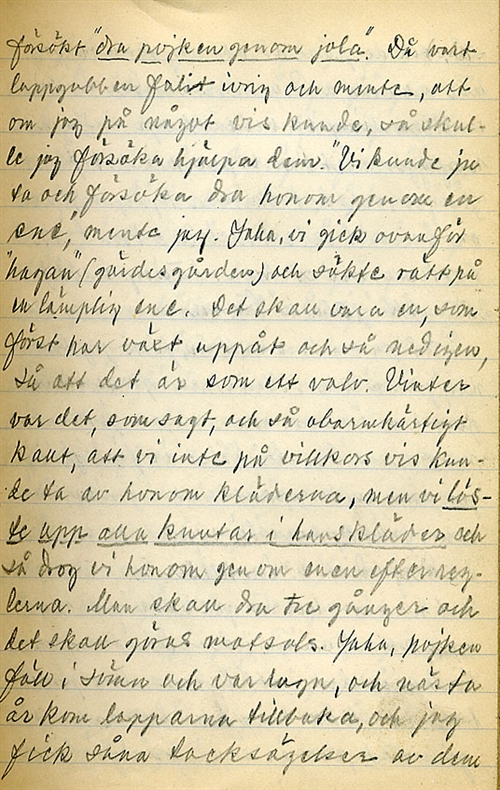 försökt "dra pojken genom jola". Då vart
lappgubben falit ivrig och mente, att
om jag på något vis kunde, så skul-
le jag försöka hjälpa dem. "Vi kunde ju
ta och försöka dra honom genom en
ene", mente jag. Jaha, vi gick ovanför
"hagan" (gärdesgården) och sökte rätt på
en lämplig ene. Det skall vara en, som
först har växt uppåt och så nedigen,
så att det är som ett valv. Vinter
var det, som sagt, och så obarmhärtigt
kallt, att vi inte på villkors vis kun-
de ta av honom kläderna, men vi lös-
te upp alla knutar i hans kläder och
så drog vi honom genom enen efter reg-
lerna. Man skall dra tre gånger och
det skall göras motsols. Jaha, pojken
föll i sömn och var lugn, och nästa
år kom lapparna tillbaka, och jag
fick såna tacksägelser av dem